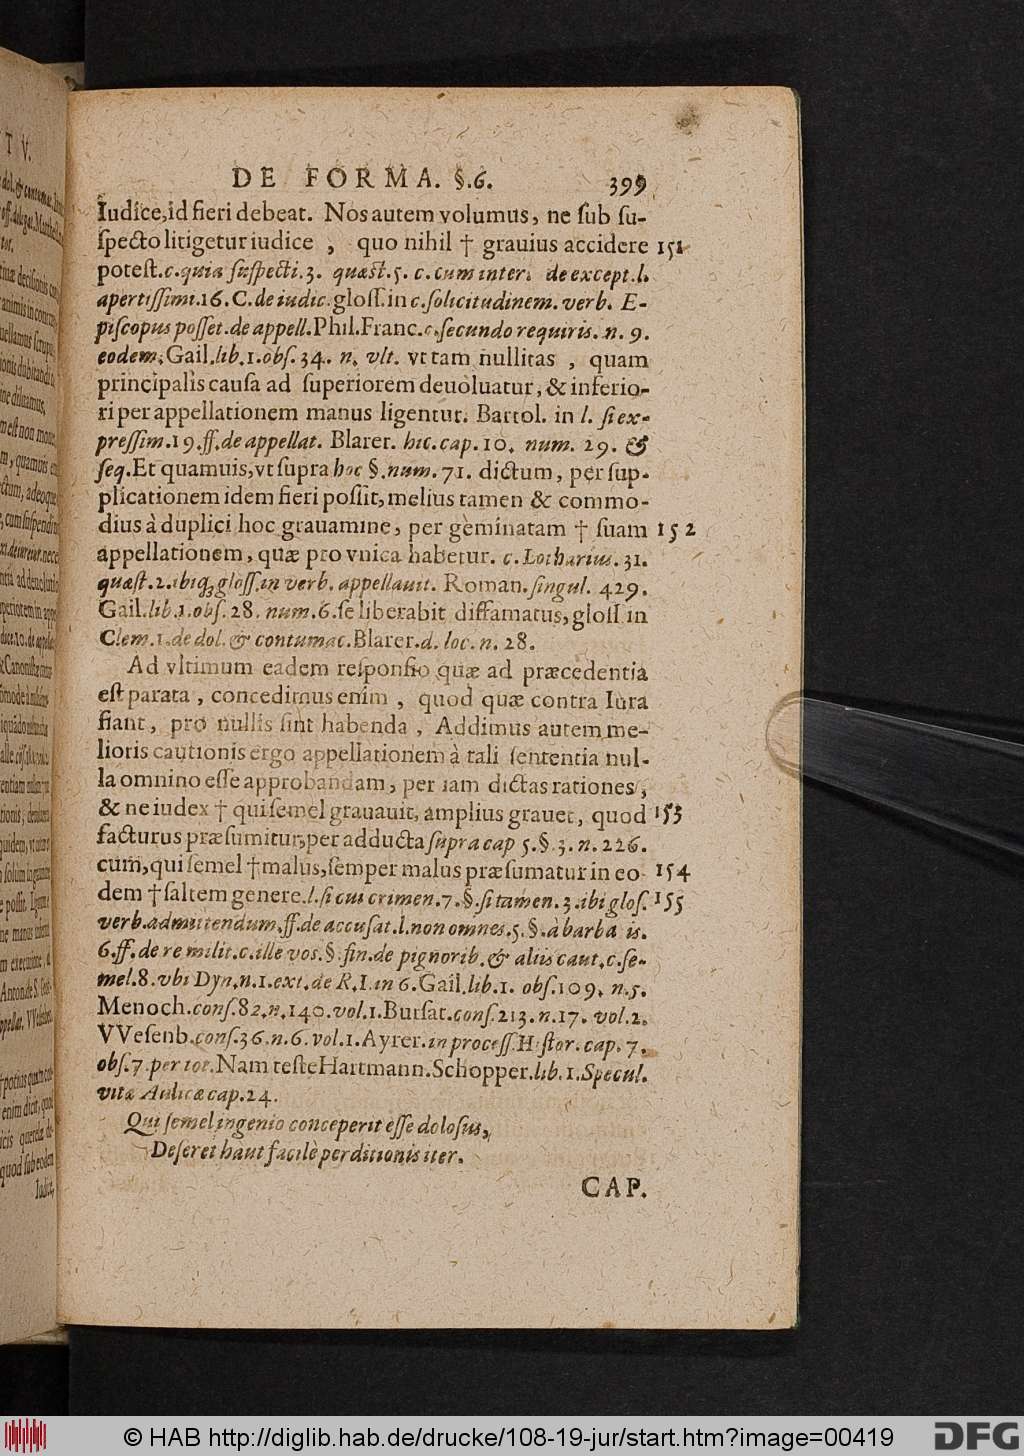 DE FORMA. §.6. 399
Iudice,id fieri debeat. Nos autem volumus, ne sub su-
specto litigetur iudice , quo nihil † grauius accidere 151
potest.c.quia suspecti.3. quæst.5. c.cum inter. de except.l.
apertissimi.16.C.de iudic.gloss.in c.solicitudinem.verb. E-
piscopus posset.de appell.Phil.Franc.c.secundo requiris.n.9.
eodem.Gail.lib.1.obs.34. n. vlt. vt tam nullitas , quam
principalis causa ad superiorem deuoluatur, & inferio-
ri per appellationem manus ligentur. Bartol. in l. si ex-
pressim.19.ff.de appellat. Blarer. hic.cap.10. num. 29. &
seq.Et quamuis,vt supra hoc §.num.71. dictum, per sup-
plicationem idem fieri possit,melius tamen & commo-
dius à duplici hoc grauamine, per geminatam † suam 152
appellationem, quæ pro vnica habetur. c.Lotharius.31.
quæst.2.ibiq́;gloss.in verb. appellauit. Roman.singul. 429.
Gail.lib.1.obs.28. num.6.se liberabit diffamatus, gloss in
Clem.1.de dol.& contumac.Blarer.d. loc.n.28.
Ad vltimum eadem responsio quæ ad præcedentia
est parata , concedimus enim , quod quæ contra Iura
fiant, pro nullis sint habenda , Addimus autem me-
lioris cautionis ergo appellationem à tali sententia nul-
la omnino esse approbandam, per iam dictas rationes,
& ne iudex † qui semel grauauit, amplius grauet, quod 153
facturus præsumitur,per adducta supra cap 5.§.3.n.226.
cum,qui semel † malus,semper malus præsumatur in eo 154
dem † saltem genere.l.si cui crimen.7.§.si tamen.3.ibi glos. 155
verb.admittendum.ff.de accusat.l.non omnes.5.§.à barba is.
6.ff.de re milit.c.ille vos.§.fin.de pignorib.& aliis caut.c.se-
mel.8.vbi Dyn.n.1.ext.de R.I.in 6.Gail.lib.1. obs.109. n.5.
Menoch.cons.82.n.140.vol.1.Bursat.cons.213.n.17. vol.2.
VVesenb.cons.36.n.6.vol.1.Ayrer.in process.Histor.cap.7.
obs.7.per tot.Nam teste Hartmann.Schopper.lib.1.Specul.
vitæ Aulicæ cap.24.
Qui semel ingenio conceperit esse dolosus,
Deseret haut facilè perditionis iter.
CAP.
© HAB http://diglib.hab.de/drucke/108-19-jur/start.htm?image=00419
DFG